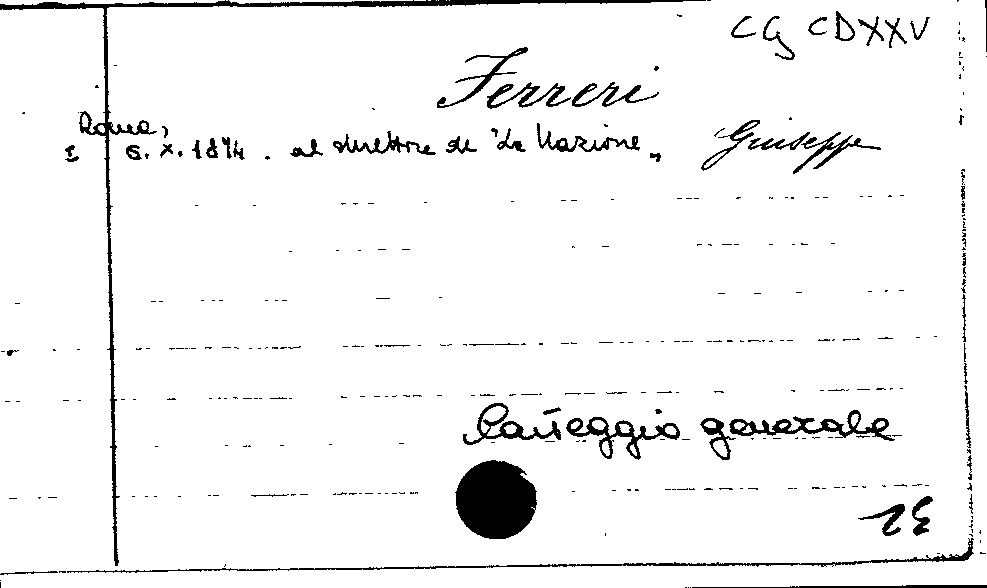 CG CDXXV
Ferreri
Giuseppe
Roma,
1 6.X.1874. al direttore de "La Nazione„
Carteggio generale